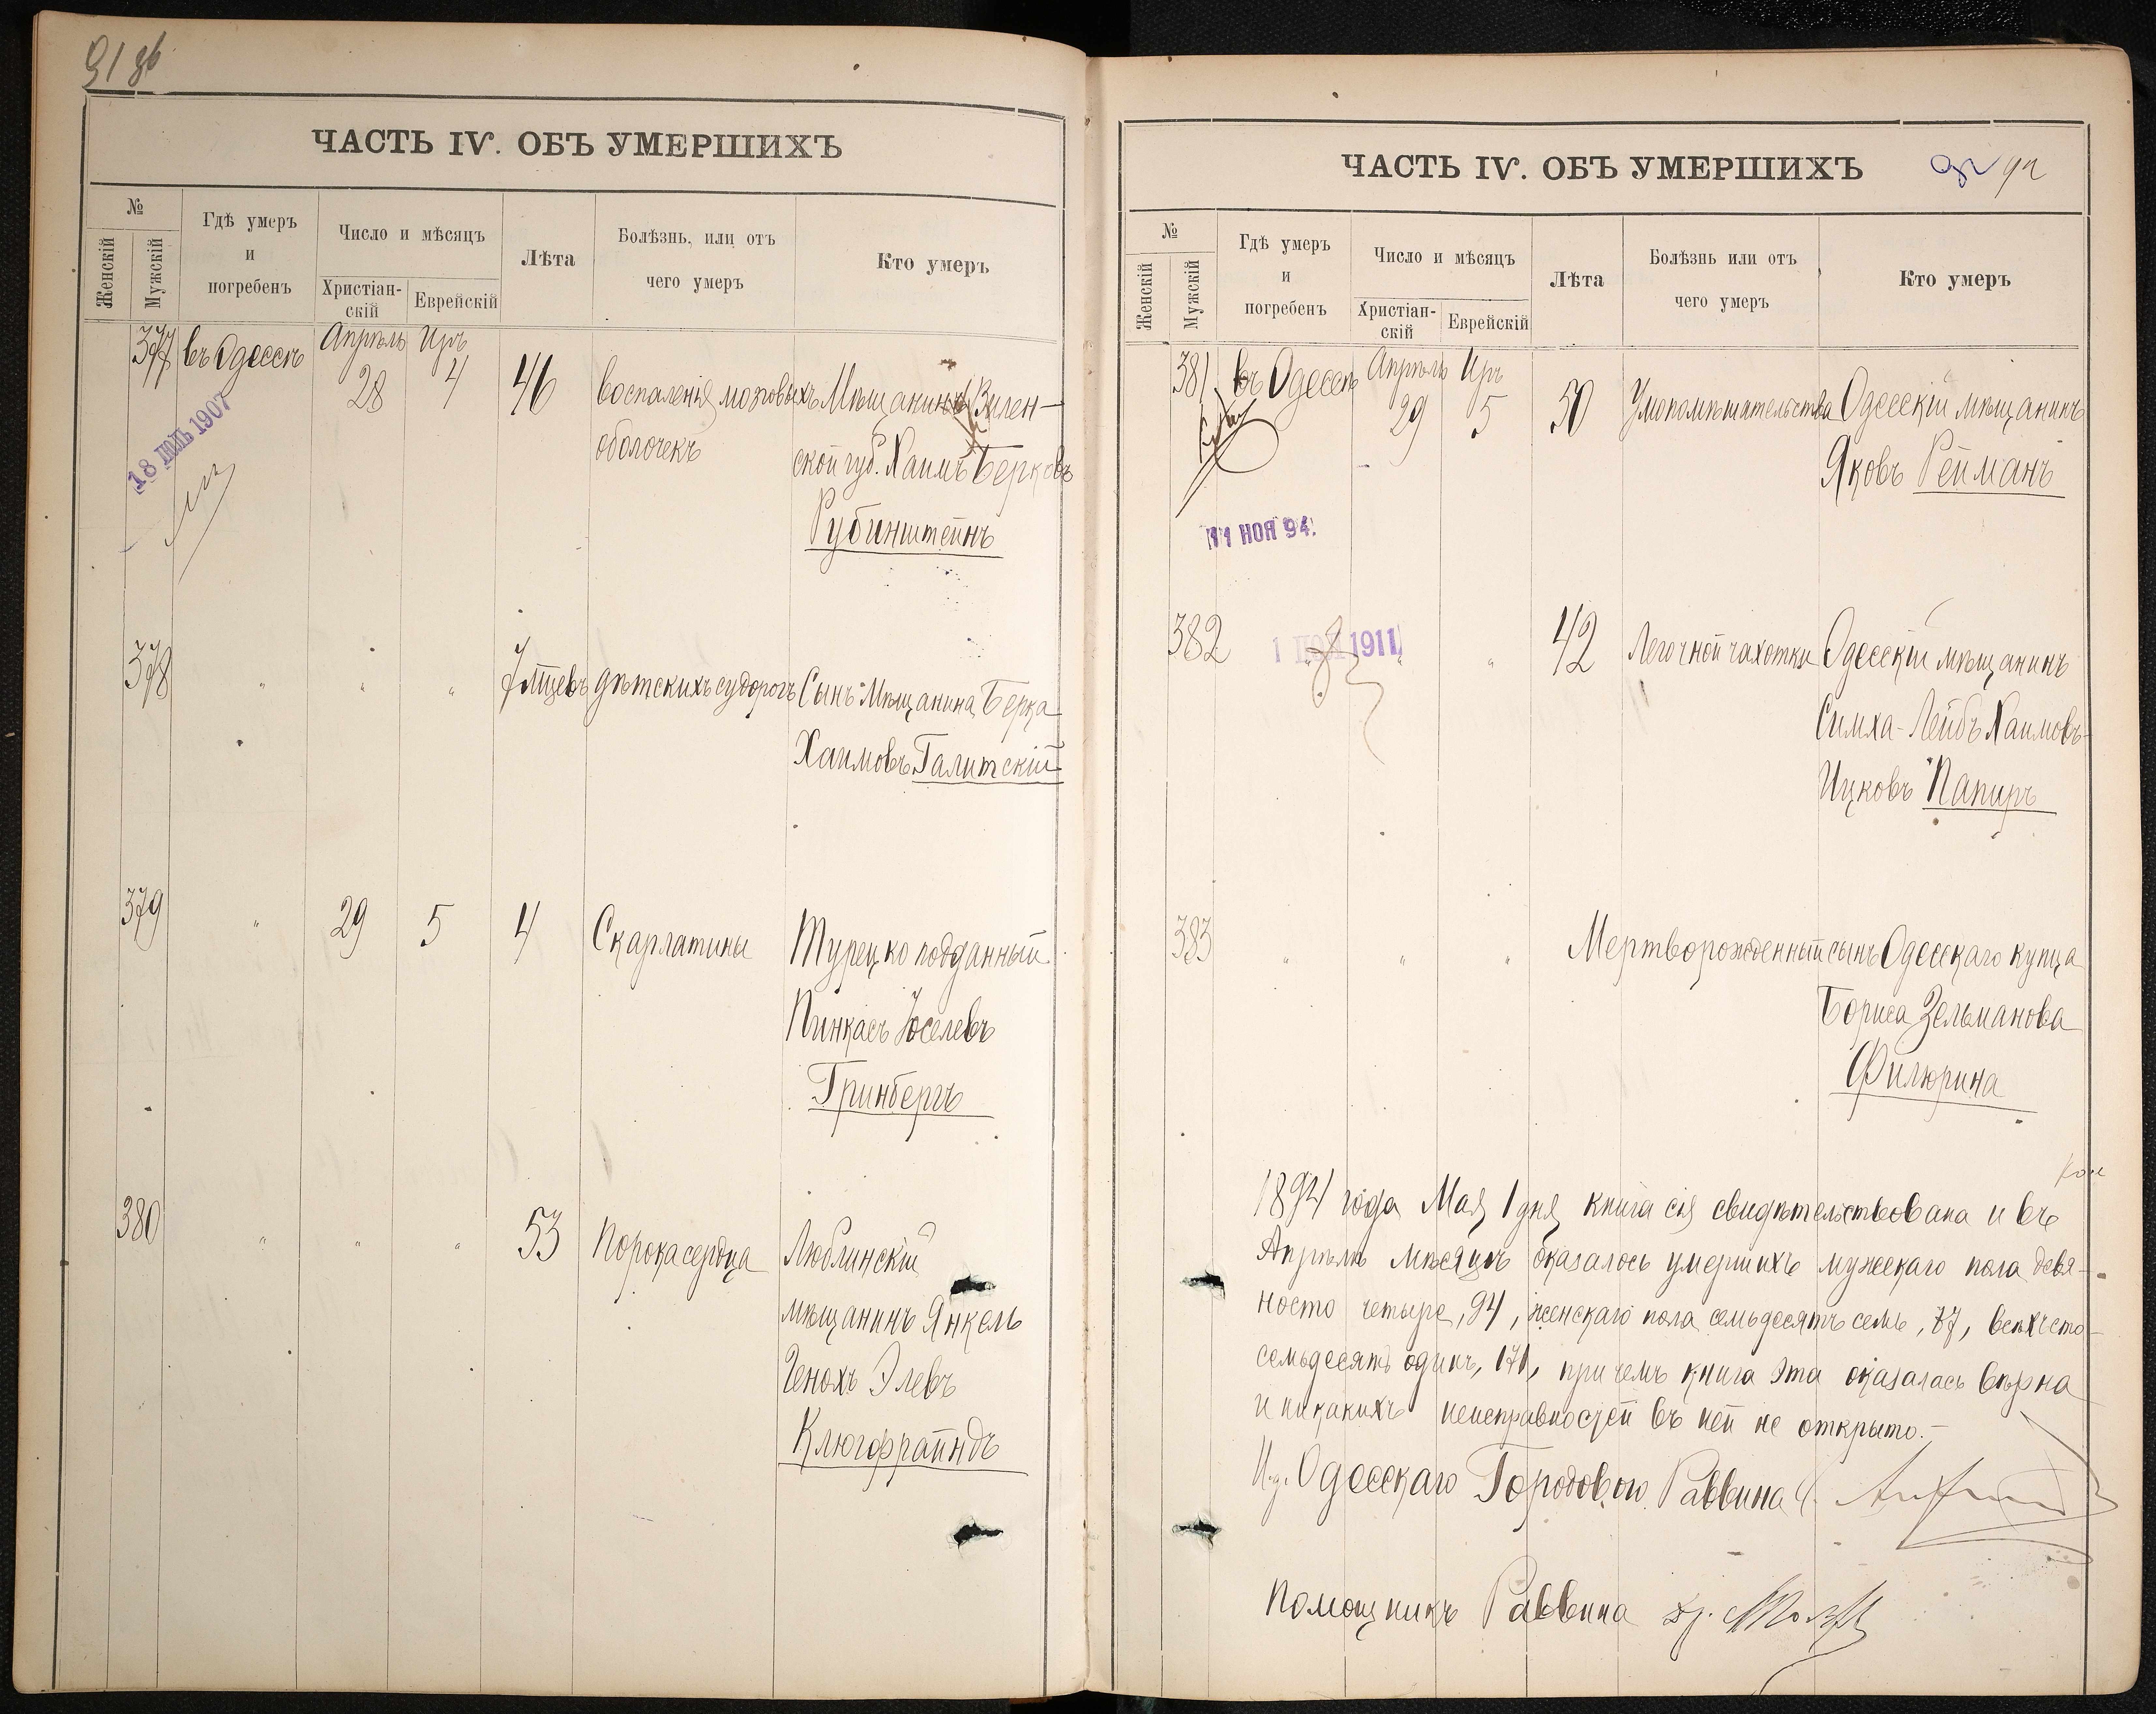 91 об
ЧАСТЬ IV. ОБЪ УМЕРШИХЪ
№
Женскій
Мужскій
Гдѣ умеръ
и
погребенъ
Число и мѣсяцъ
Христіан-
скій
Еврейскій
Лѣта
Болѣзнь, или отъ
чего умеръ
Кто умеръ
377 въ Одессѣ Апрѣль Иръ
28 4 46 воспаленія мозговыхъ Мѣщанинъ Вилен-
оболочекъ ской губ. Хаимъ Берковъ
18 ІЮЛЬ 1907
Рубинштейнъ
378 " " " 7 мцевъ дѣтскихъ судорогъ Сынъ мѣщанина Берка
Хаимовъ Галитскій
379 " 29 5 4 Скарлатины Турецко подданный
Пинкасъ Іоселевъ
Гринбергъ
380 " " " 53 Порока сердца Люблинскій
мѣщанинъ Янкель
Генохъ Элевъ
Клюгофрайндъ
ЧАСТЬ IV. ОБЪ УМЕРШИХЪ
92 92
№
Женскій
Мужскій
Гдѣ умеръ
и
погребенъ
Число и мѣсяцъ
Христіан-
скій
Еврейскій
Лѣта
Болѣзнь или отъ
чего умеръ
Кто умеръ
381 въ Одессѣ Апрѣль Иръ
29 5 50 Умопомѣшательства Одесскій мѣщанинъ
Яковъ Рейманъ
11 НОЯ 94.
382 " " " 42 Легочной чахотки Одесскій мѣщанинъ
1911
Симха-Лейбъ Хаимовъ-
Ицковъ Папиръ
383 " " " Мертворожденный сынъ Одесскаго купца
Бориса Зельманова
Филюрина
1894 года Мая 1 дня книга сія свидѣтельствована и въ
Апрѣлѣ мѣсяцѣ оказалось умершихъ мужескаго пола девя-
носто четыре, 94, женскаго пола семьдесятъ семь, 77, всѣхъ сто-
семьдесятъ одинъ, 171, при чемъ книга эта оказалась вѣрна
и никакихъ неисправностей въ ней не открыто.-
И.д. Одесскаго Городового Раввина
Помощникъ Раввина